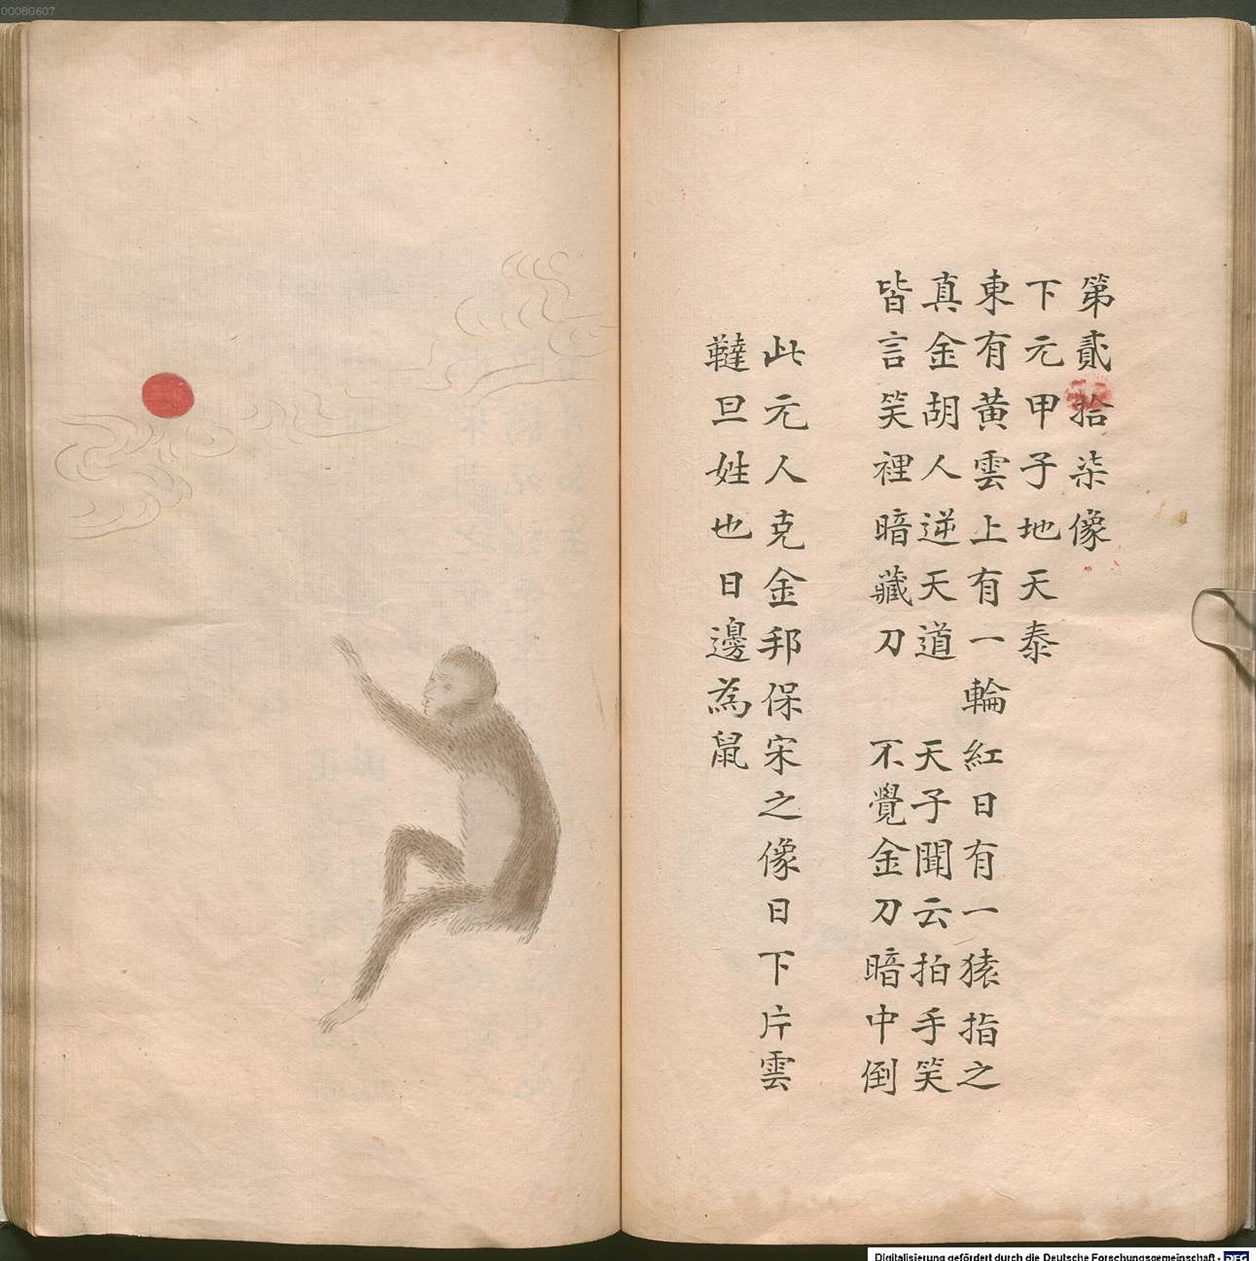 00080607
第貳拾柒像
下元甲子地天泰
東有黃雲上有一輪紅日有一猿指之
真金胡人逆天道 天子聞云拍手笑
皆言笑裡暗藏刀 不覺金刀暗中倒
此元人克金邦保宋之像日下片雲
韃旦姓也日邊為鼠
Digitalisierung gefördert durch die Deutsche Forschungsgemeinschaft - DFG